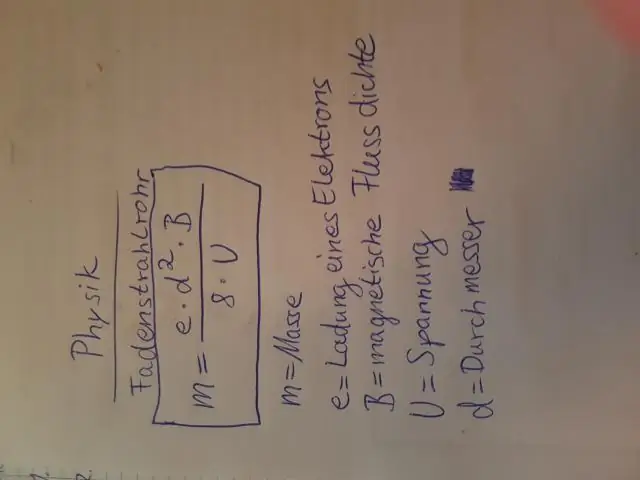 Physik
Fadenstrahlrohr
m = e · d² · B / 8 · U
m = Masse
e = Ladung eines Elektrons
B = magnetische Fluss dichte
U = Spannung
d = Durchmesser
1.
2.